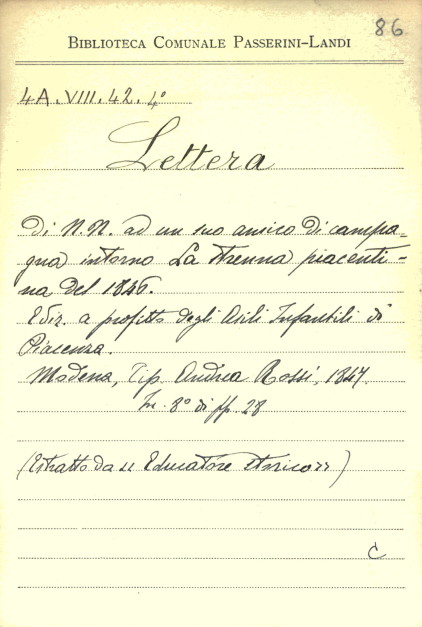 86
BIBLIOTECA COMUNALE PASSERINI-LANDI
4A.VIII.42.4º
Lettera
di N.N. ad un suo amico di campa-
gna intorno La Strenna piacenti-
na del 1846.
Ediz. a profitto degli Asili Infantili di
Piacenza.
Modena, Tip. Andrea Rossi, 1847.
In-8º di pp. 28
(Estratto da "Educatore Storico")
C